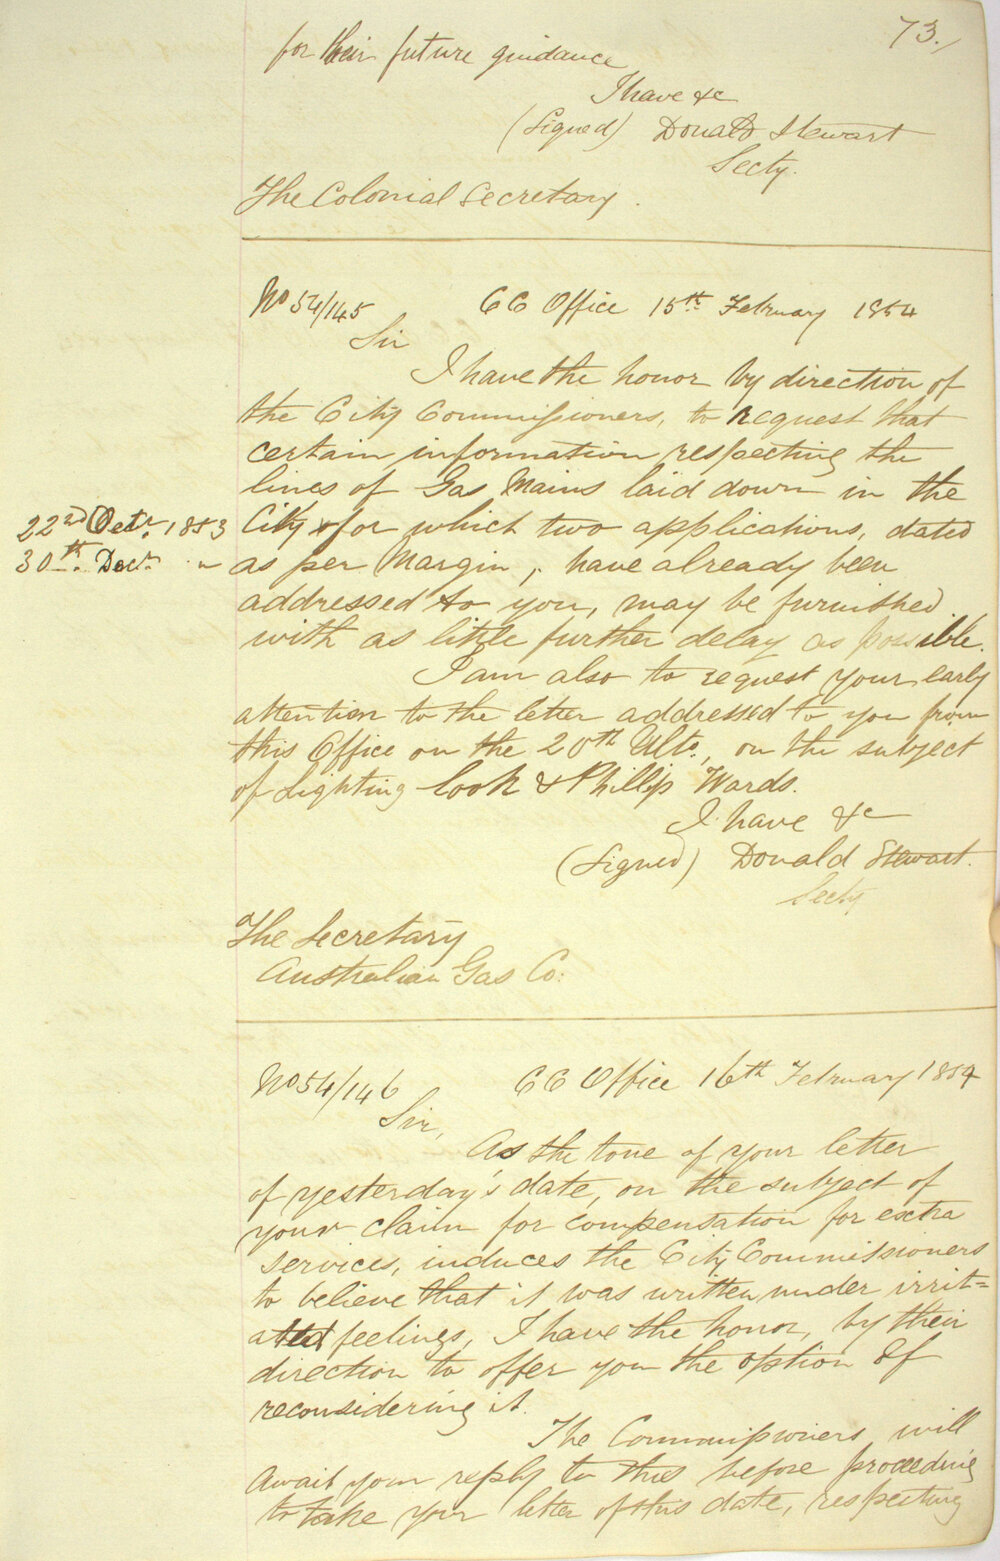 73.
for their future guidance
I have &c
(Signed) Donald Stewart
Secty.
The Colonial Secretary.
No 54/145 CC Office 15th February 1854
Sir
I have the honor by direction of
the City Commissioners, to request that
certain information respecting the
lines of Gas Mains laid down in the
22nd Octr. 1853 City & for which two applications, dated
30th. Decr. " as per Margin, have already been
addressed to you, may be furnished
with as little further delay as possible.
I am also to request your early
attention to the letter addressed to you from
this Office on the 20th Ulto., on the subject
of Lighting Cook & Phillip Wards.
I have &c
(Signed) Donald Stewart.
Secty
The Secretary
Australian Gas Co:
No 54/146 CC Office 16th February 1854
Sir,
As the tone of your letter
of yesterday's date, on the subject of
your claim for compensation for extra
services, induces the City Commissioners
to believe that it was written under irrit=
ated feelings, I have the honor, by their
direction to offer you the option of
reconsidering it.
The Commissioners will
await your reply to this before proceeding
to take your letter of this date, respecting